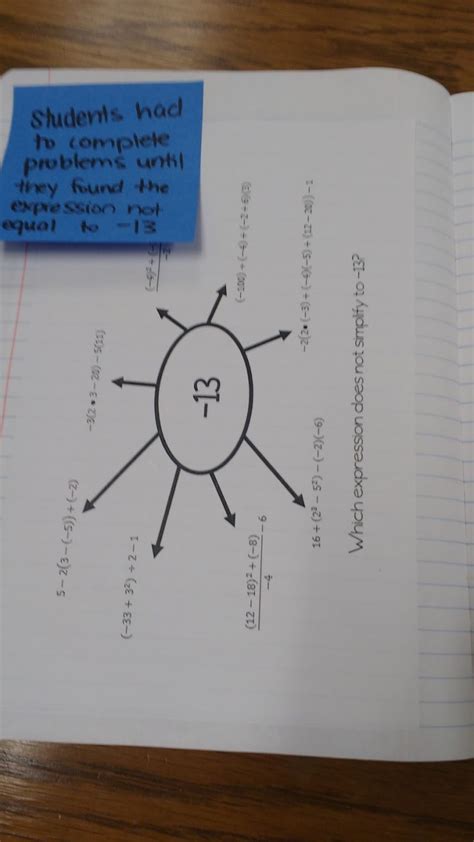 Students had
to complete
problems until
they found the
expression not
equal to -13
5 - 2(3 - (-5)) + (-2)
-3(2 • 3 - 20) - 5(11)
(-9)² + (
-2
(-33 + 3²) ÷ 2 - 1
-13
(-100) ÷ (-4) + (-2 + 6)(3)
(12 - 18)² + (-8)
-4
- 6
16 + (2³ - 5²) - (-2)(-6)
-2(2• (-3) + (-4)(-5) + (12 - 20)) - 1
Which expression does not simplify to -13?